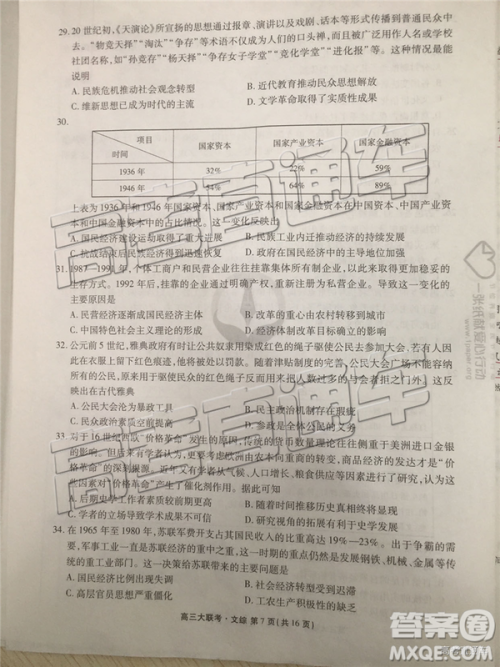 29. 20 世纪初,《天演论》所宣扬的思想通过报章、演讲以及戏剧、话本等形式传播到普通民众中
去。“物竞天择”“淘汰”“争存”等术语不仅成为人们的口头禅,而且被广泛应用作人名或学校
社团名称,如“孙竞存”“杨天择”“争存女子学堂”“竞化学堂”“进化报”等。这种情况最能
说明
A. 民族危机推动社会观念转型 B. 近代教育推动民众思想解放
C. 维新思想已成为时代的主流 D. 文学革命取得了实质性成果
30.
项目 国家资本 国家产业资本 国家金融资本
时间
1936 年 32% 22% 59%
1946 年 54% 64% 89%
上表为 1936 年和 1946 年国家资本、国家产业资本和国家金融资本在中国资本、中国产业资本
和中国金融资本中的占比情况。这一变化反映出
A. 国民经济建设运动取得了重大进展 B. 民族工业内迁推动经济的持续发展
C. 抗战结束后民族经济得到迅速恢复 D. 政府在国民经济中的主导地位加强
31. 1987—1991 年,个体工商户和民营企业往往挂靠集体所有制企业,以此来获得更大更好的
生存方式。1992 年后,挂靠的企业通过明确产权,重新注册为私营企业。导致这一变化的
主要原因是
A. 民营经济逐渐成为国民经济主体 B. 改革的重心由农村转移到城市
C. 中国特色社会主义理论的形成 D. 经济体制改革目标的确立
32. 公元前 5 世纪,雅典政府有时让公共奴隶用染成红色的绳子驱使民众参加公民大会。如果
在衣服上留下红色痕迹,他将会被处以罚款。随着津贴制度的完善,公民大会广场不能容纳
所有的公民,绳子从驱使民众参加大会变成了将过多的与会者拒之门外。这一变化
反映的古代雅典
A. 公民大会沦为暴政工具 B. 民主政治机制存有弊端
C. 民众政治素质空前提高 D. 公民参政的热情增加
33. 对于 16 世纪西欧“价格革命”的原因,传统的货币数量理论往往注重于美洲进口金银
的影响。但后来史学工作者更倾向于考察欧洲由农本向工商的社会转型,将其视为“价格革
命”的深刻根源。还有学者认为,人口增长、粮食供给等因素与货币、信贷及贸易
这些因素对“价格革命”产生了催化剂作用。据此可知
A. 后期史学工作者素质较前期更高 B. 随着时间推移历史真相终将显现
C. 学者的立场导致学术成果大相径庭 D. 研究角度的拓展有利于史学发展
34. 在 1965 年至 1980 年,苏联军费开支占其国民收入的比重高达 19%—23%。出于争霸的需
要,军事工业一直是苏联经济的重中之重,这一时期的重点仍然是发展钢铁、机械、
化工等重工业,
A. 国民经济比例失调 B. 经济改革受到迟滞
C. 高层官员思想开放 D. 农业组织形式缺乏
高三大联考·文综 第 7 页(共 16 页)
高考直通车
一张纸献爱心行动
答案圈
MXQE.COM